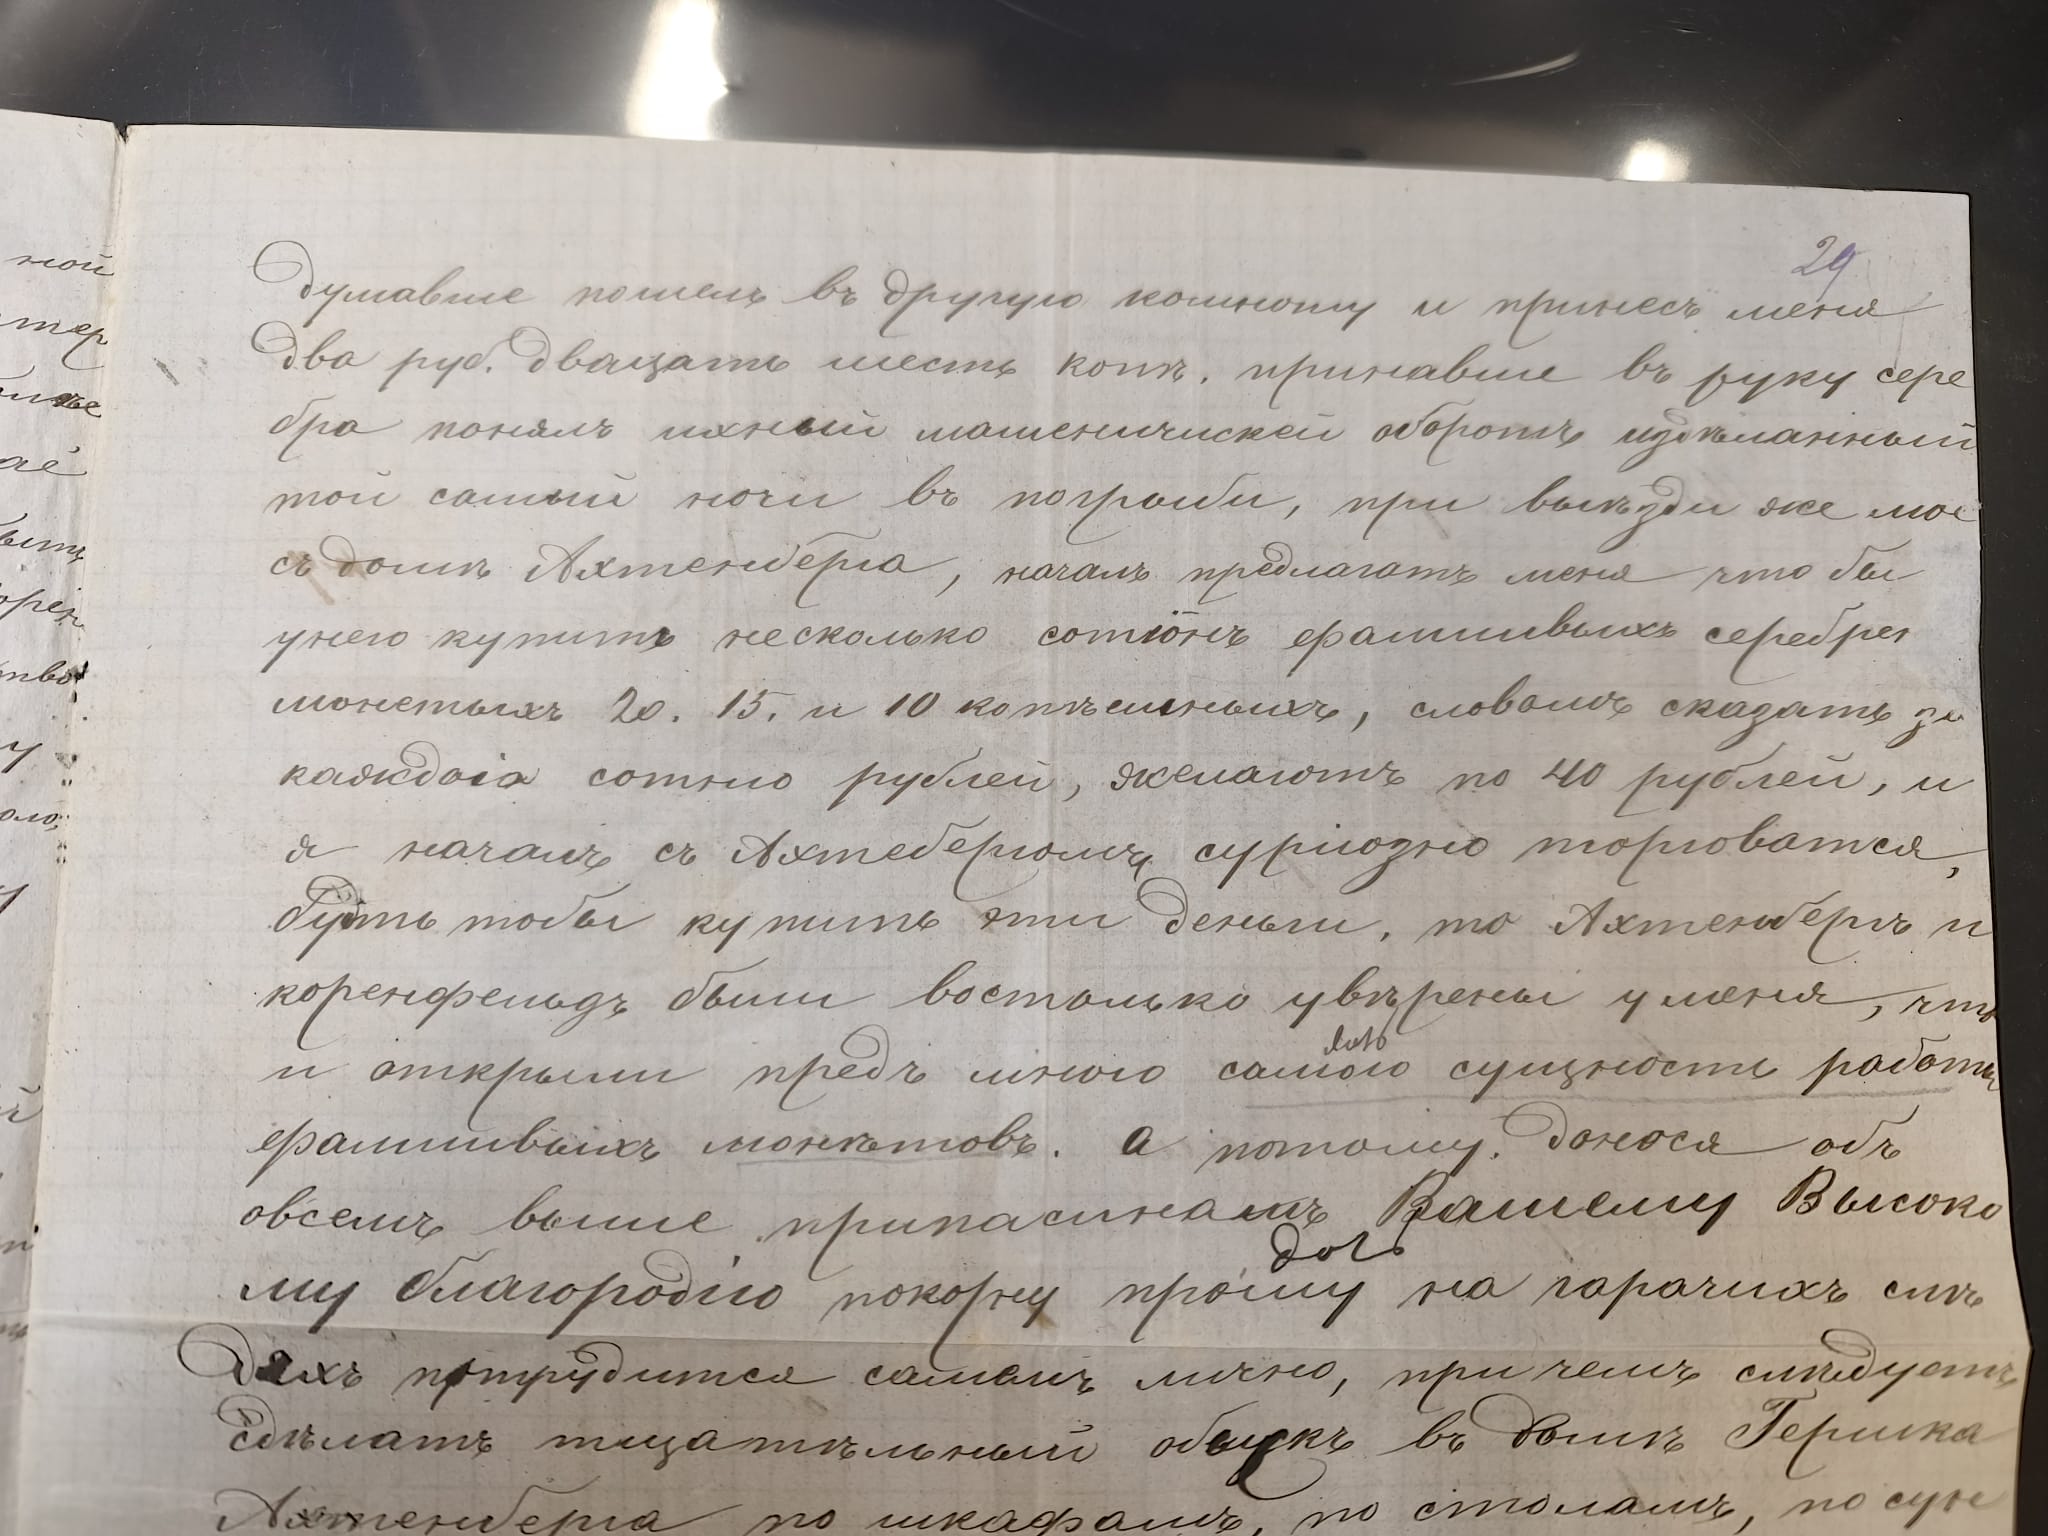 29
думавше пошелъ въ другую комноту и принесъ меня
два руб. двацать шесть копѣ. принавше въ руку сере
бра понялъ ихный машеничискей оборотъ издѣланный
той самый ночи въ погрыби, при выѣзди же мое
съ домѣ Ахтенберга, началъ предлагать меня что бы
унего купить несколько сотіонъ фалшивыхъ серебрен
монетыхъ 20. 15. и 10 копѣешныхъ, словомъ сказать за
каждоіа сотню рублей, желаютъ по 40 рублей, и
я началъ съ Ахтебергомъ суріозно торговатся,
бутьтобы купить эти деньги, то Ахтенбергъ и
коренфельдъ были востолько увѣрены уменя, что
и открыли предъ мною самою сущность работы
фалшивыхъ монѣтовъ. а потому. донося объ
овсемъ выше припасинамъ Вашему Высоко
му благородію покорну прошу на гарачихъ слѣ
дахъ потрудится самымъ лично, при чемъ слѣдуетъ
сдѣлать тщатѣльный обыскъ въ домѣ Гершка
Ахтенберга по шкафамъ, по столамъ, по сун
ной